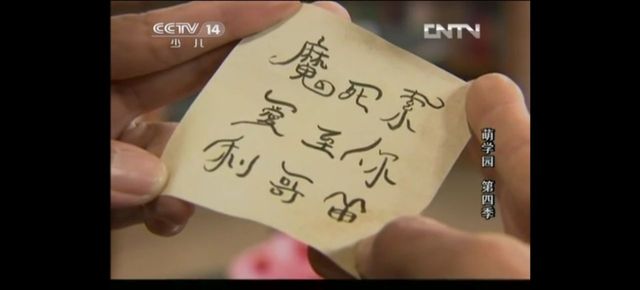 CCTV 14
少儿
CNTV
魔死索
愛至你
利哥笛
萌学园 第四季